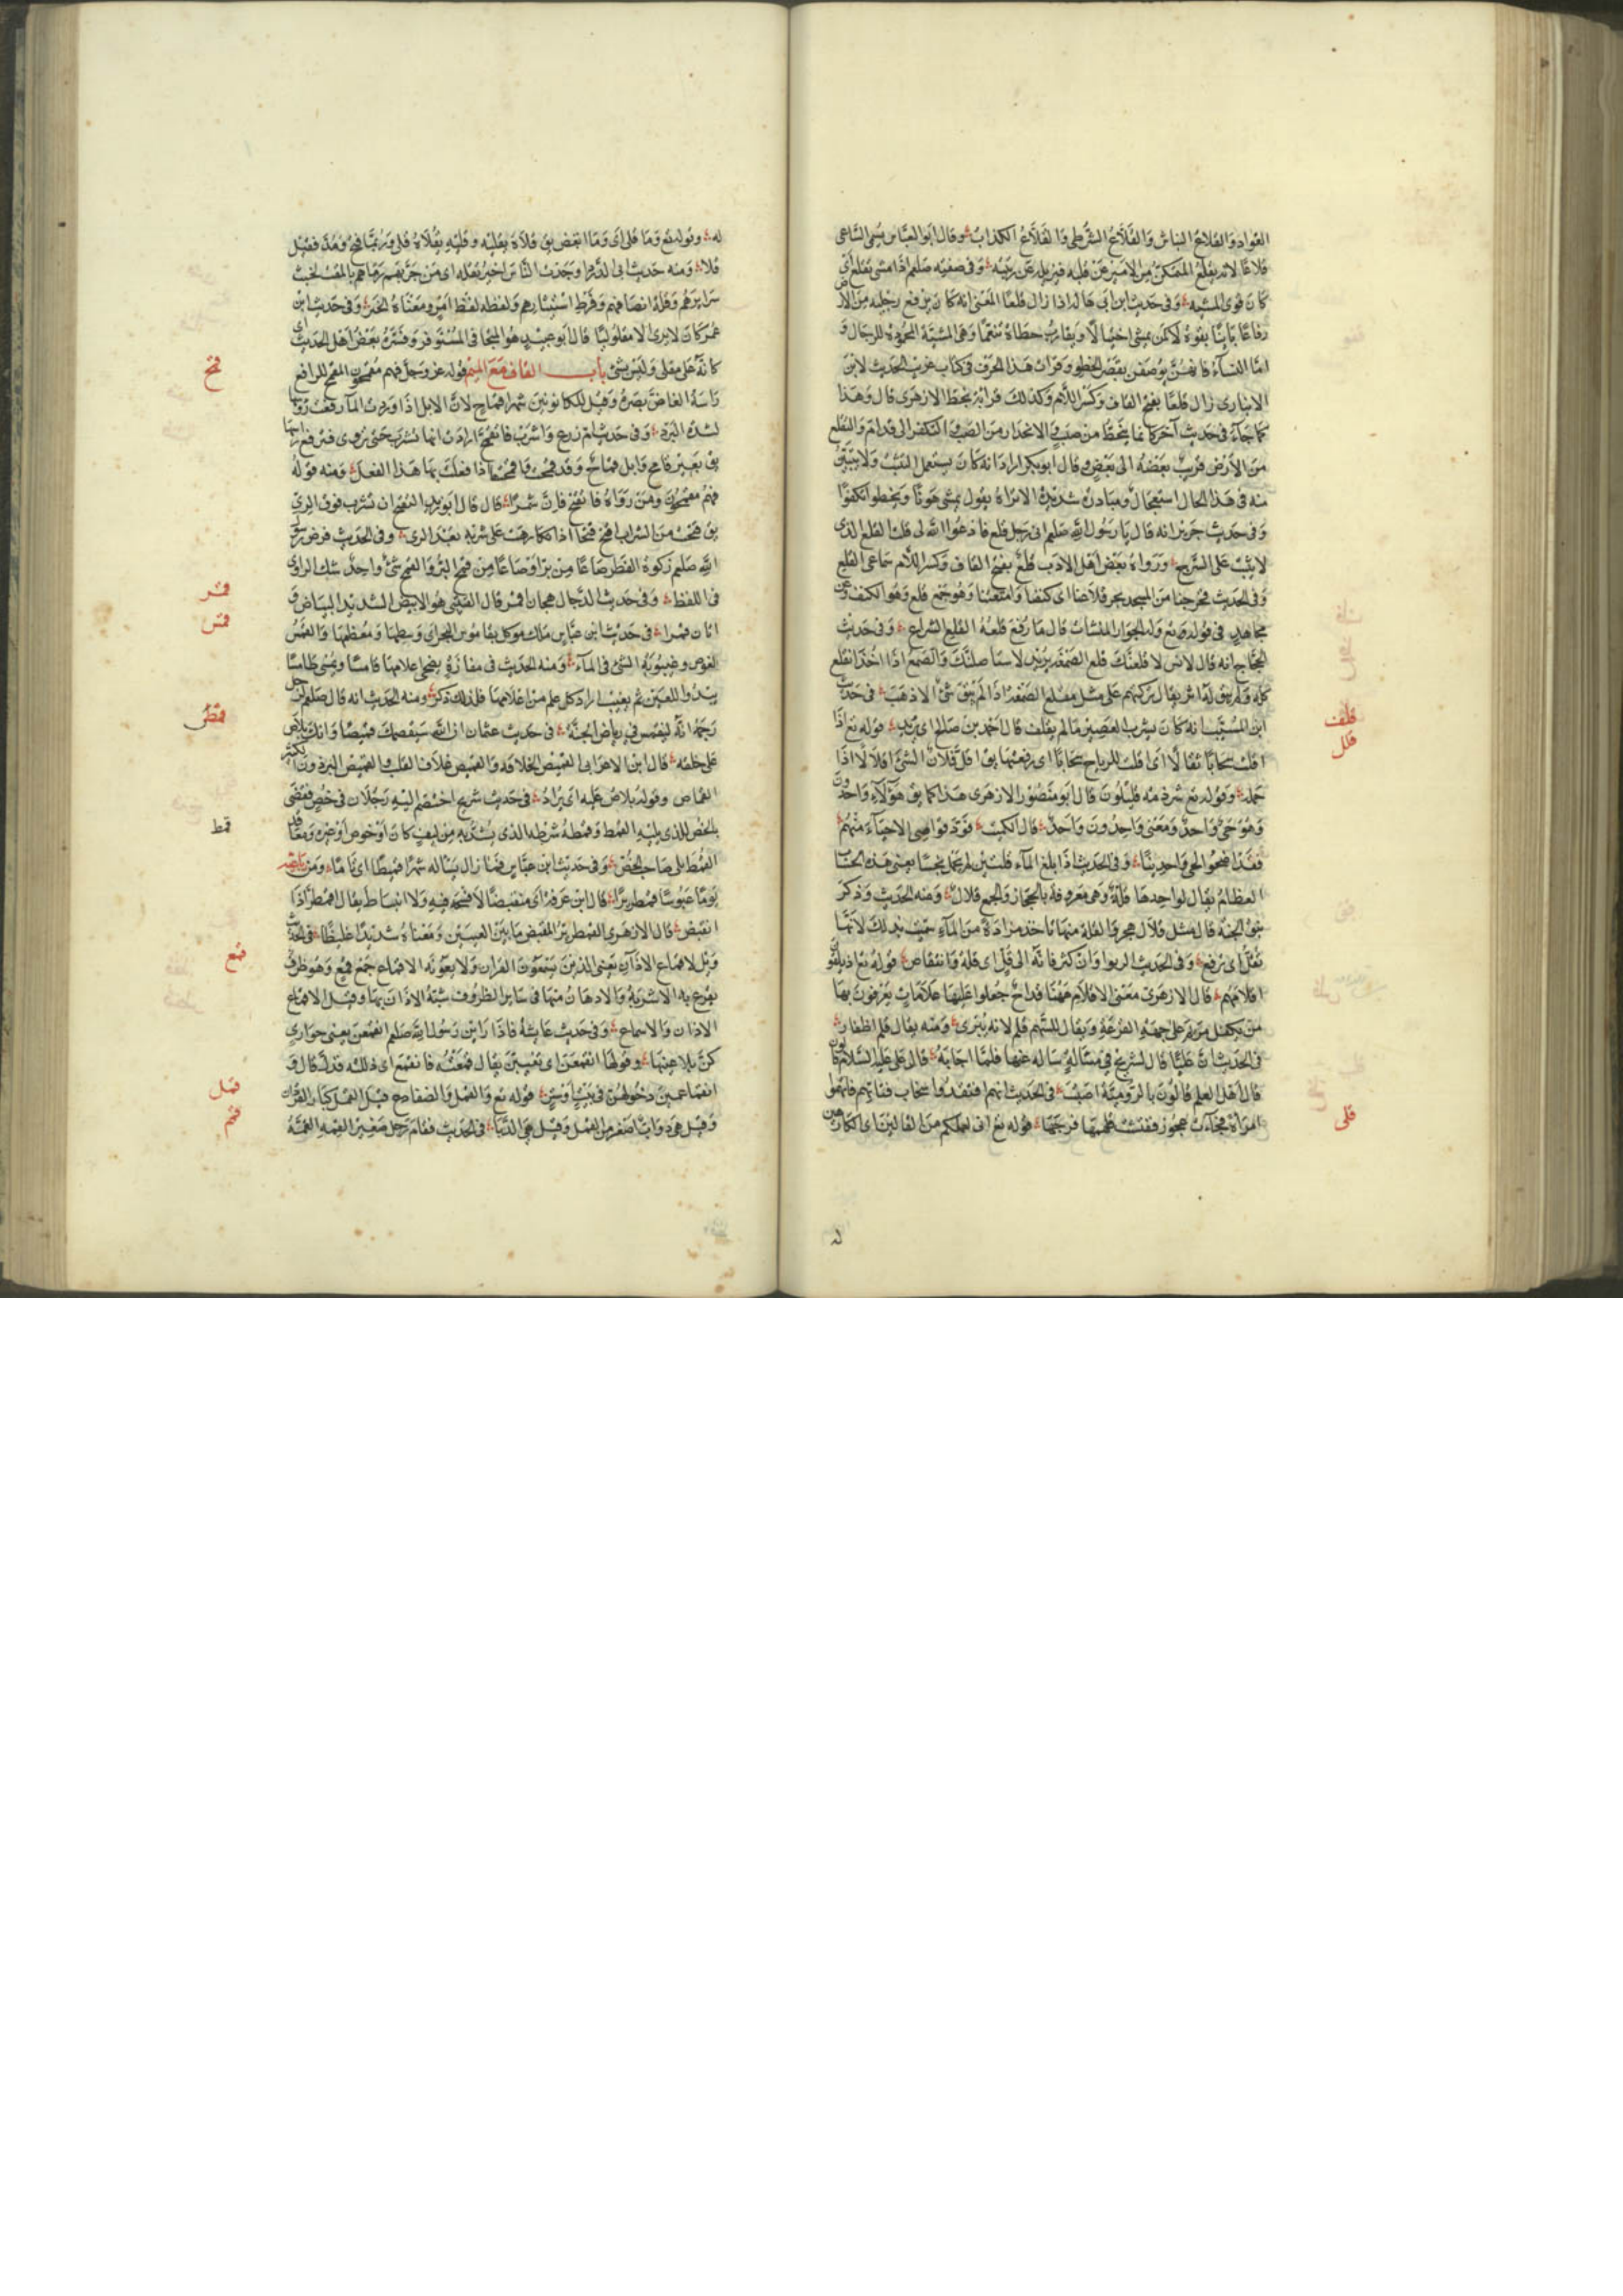 القواد والقلاع النباش والقلاع الشرطي والقلاع الكذاب وقال ابو العباس سمى الساعى
قلاعا لانه يقلع المتمكن من الامير عن قلبه فيزيله عن رتبته وفى صفته صلعم اذا مشى تقلع اى
كان قوى المشية وفى حديث ابن ابى هاله اذا زال قلعا المعنى انه كان يرفع رجليه من الارض
رفعا بائنا بقوة لا كمن يمشى اختيالا ويقارب خطاه تنعما وهى المشية المحمودة للرجال و
اما النساء فانهن يوصفن بقصر الخطو وقرات هذا الحرف فى كتاب غريب الحديث لابن
الانبارى زال قلعا بفتح القاف وكسر اللام وكذلك قراته بخط الازهرى قال وهذا
كما جاء فى حديث آخر كانما ينحط من صبب والانحدار من الصبب والتكفؤ الى قدام والتقلع
من الارض قريب بعضه الى بعض وقال ابو بكر اراد انه كان يستعمل التثبت ولا يتبين
منه فى هذا الحال استعجال ومبادرة شديدة الا تراه يقول يمشى هونا ويخطو تكفؤا
وفى حديث جرير انه قال يا رسول الله صلعم انى رجل قلع فادعوا الله لى قلت القلع الذى
لا يثبت على السرج ورواه بعض اهل الادب قلع بفتح القاف وكسر اللام سماعى القلع
وفى الحديث فخرجنا من المسجد نجر قلاعنا اى كنفنا وامتعتنا وهو جمع قلع وهو الكنف وعن
مجاهد فى قوله تع وله الجوار المنشات قال ما رفع قلعه القلع الشراع وفى حديث
الحجاج انه قال لانس لاقلعنك قلع الصمغة يريد لاستاصلنك والصمغ اذا اخذ انقلع
كله ولم يبق له اثر يقال تركتهم على مثل مقلع الصمغة اذا لم يبق شئ الا ذهب فى حديث
ابن المسيب انه كان يشرب العصير ما لم يقلف قال احمد بن صالح اى يزبد قوله تع اذا
اقلت سحابا ثقالا اى اقلت الرياح سحابا اى رفعتها يق اقل فلان الشئ اقلالا اذا
حمله وقوله تع شرذمة قليلون قال ابو منصور الازهرى هذا كما يق هؤلاء واحدون
وهو حى واحد ومعنى واحدون واحد قال الكميت فرد قواصى الاحياء منهم
فقد اضحوا كحى واحدينا وفى الحديث اذا بلغ الماء قلتين لم يحمل نجسا يعنى هذه الحباب
العظام يقال لواحدها قلة وهى معروفة بالحجاز والجمع قلال ومنه الحديث وذكر
نبق الجنة قال مثل قلال هجر والقلة منها تاخذ مزادة من الماء سميت بذلك لانها
تقل اى ترفع وفى الحديث الربوا وان كثر فانه الى قل اى قلة وانتقاص قوله تع اذ يلقون
اقلامهم قال الازهرى معنى الاقلام ههنا قداح جعلوا عليها علامات يعرفون بها
من يكفل مريم على جهة القرعة ويقال للسهم قلم لانه يبرى ومنه يقال قلم اظفاره
فى الحديث ان عليا قال لشريح فى مسالة ساله عنها فلما اجابه قال على عليه السلام قالون
قال اهل العلم قالون بالرومية اصبت فى الحديث انهم افتقدوا سخاب فتاتهم فاتهموا
امراة فجاءت عجوز ففتشت قلهمها فرجها قوله تع انى لعملكم من القالين اى الكارهين
قلف
قلل
قلى
له
له وقوله تع وما قلى اى وما ابغض يق قلاه يقليه وقليه يقلاه قلى وربما فتح ومد فقيل
قلاء ومنه حديث ابى الدرداء وجدت الناس اخبر تقله اى من جربهم رماهم بالمقت لخبث
سرايرهم وقلة انصافهم وفرط استيثارهم ولفظه لفظ امر ومعناه الخبر وفى حديث ابن
عمر كان لا يرى الا مقلوليا قال ابو عبيد هو المتجافى المستوفز وفسره بعض اهل الحديث
كانه على مقلى وليس بشئ باب القاف مع الميم قوله عز وجل فهم مقمحون المقمح الرافع
راسه الغاض بصره وقيل للكانونين شهرا قماح لان الابل اذا وردت الماء رفعت رؤسها
لشدة البرد وفى حديث ام زرع واشرب فاتقمح ارادت انها تشرب حتى تروى فترفع راسها
يق بعير قامح وابل قماح وقد قمحت وقامحتها اذا فعلت بها هذا الفعل ومنه قوله
فهم مقمحون ومن رواه فاتقنح فان شمرا قال قال ابو زيد التقنح ان تشرب فوق الرى
يق قنحت من الشراب اقنح قنحا اذا تكارهت على شربه بعد الرى وفى الحديث فرض رسول
الله صلعم زكوة الفطر صاعا من بر او صاعا من قمح البر والقمح شئ واحد شك الراوى
فى اللفظ وفى حديث الدجال هجان اقمر قال القتيبى هو الابيض الشديد البياض و
اتان قمراء فى حديث ابن عباس ملك موكل بقاموس البحر اى وسطها ومعظمها والقمس
الغوص وغيبوبة الشئ فى الماء ومنه الحديث فى مفازة يضحى اعلامها قامسا ويمسى طامسا
يبدوا للعين ثم يغيب اراد كل علم من اعلامها فلذلك ذكر ومنه الحديث انه قال صلعم لرجل
رجمه انه لينقمس فى رياض الجنة فى حديث عثمان ان الله سيقمصك قميصا وانك تلاص
على خلعه قال ابن الاعرابى القميص الخلافة والقميص غلاف القلب والقميص البرذون الكثير
القماص وقوله تلاص عليه اى تراد فى حديث شريح اختصم اليه رجلان فى خص فقضى
بالخص للذى يليه القمط وقمطه شرطه الذى يشد به من ليف كان او خوص او غيره ومعاقد
القمط تلى صاحب الخص وفى حديث ابن عباس فما زال يساله شهرا قميطا اى تاما ومن باعيه
يوما عبوسا قمطريرا قال ابن عرفة اى منقبضا لا فسحة فيه ولا انبساط يقال اقمطر اذا
انقبض قال الازهرى القمطرير المقبض ما بين العينين ومعناه شديدا غليظا فى الحديث
ويل لاقماع الاذان يعنى الذين يسمعون القران ولا يعونه الاقماع جمع قمع وهو ظرف
يفرغ به الاشربة والادهان منها فى ساير الظروف شبه الاذان بها وقيل الاقماع
الاذان والاسماع وفى حديث عايشة فاذا راين رسول الله صلعم انقمعن يعنى جوارى
كن يلاعبنها وقولها انقمعن اى تغيبن يقال قمعته فانقمع اى ذللته فذل قال و
انقماعهن دخولهن فى بيت او ستر قوله تع والقمل والضفادع قيل القمل كبار القردان
وقيل هى دواب اصغر من القمل وقيل هى الدبا فى الحديث فقام رجل صغير القمة القمة
قمح
قمر
قمس
قمص
قمط
قمع
قمل
قمم